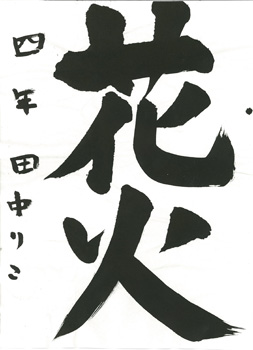 花火
四年 田中りこ